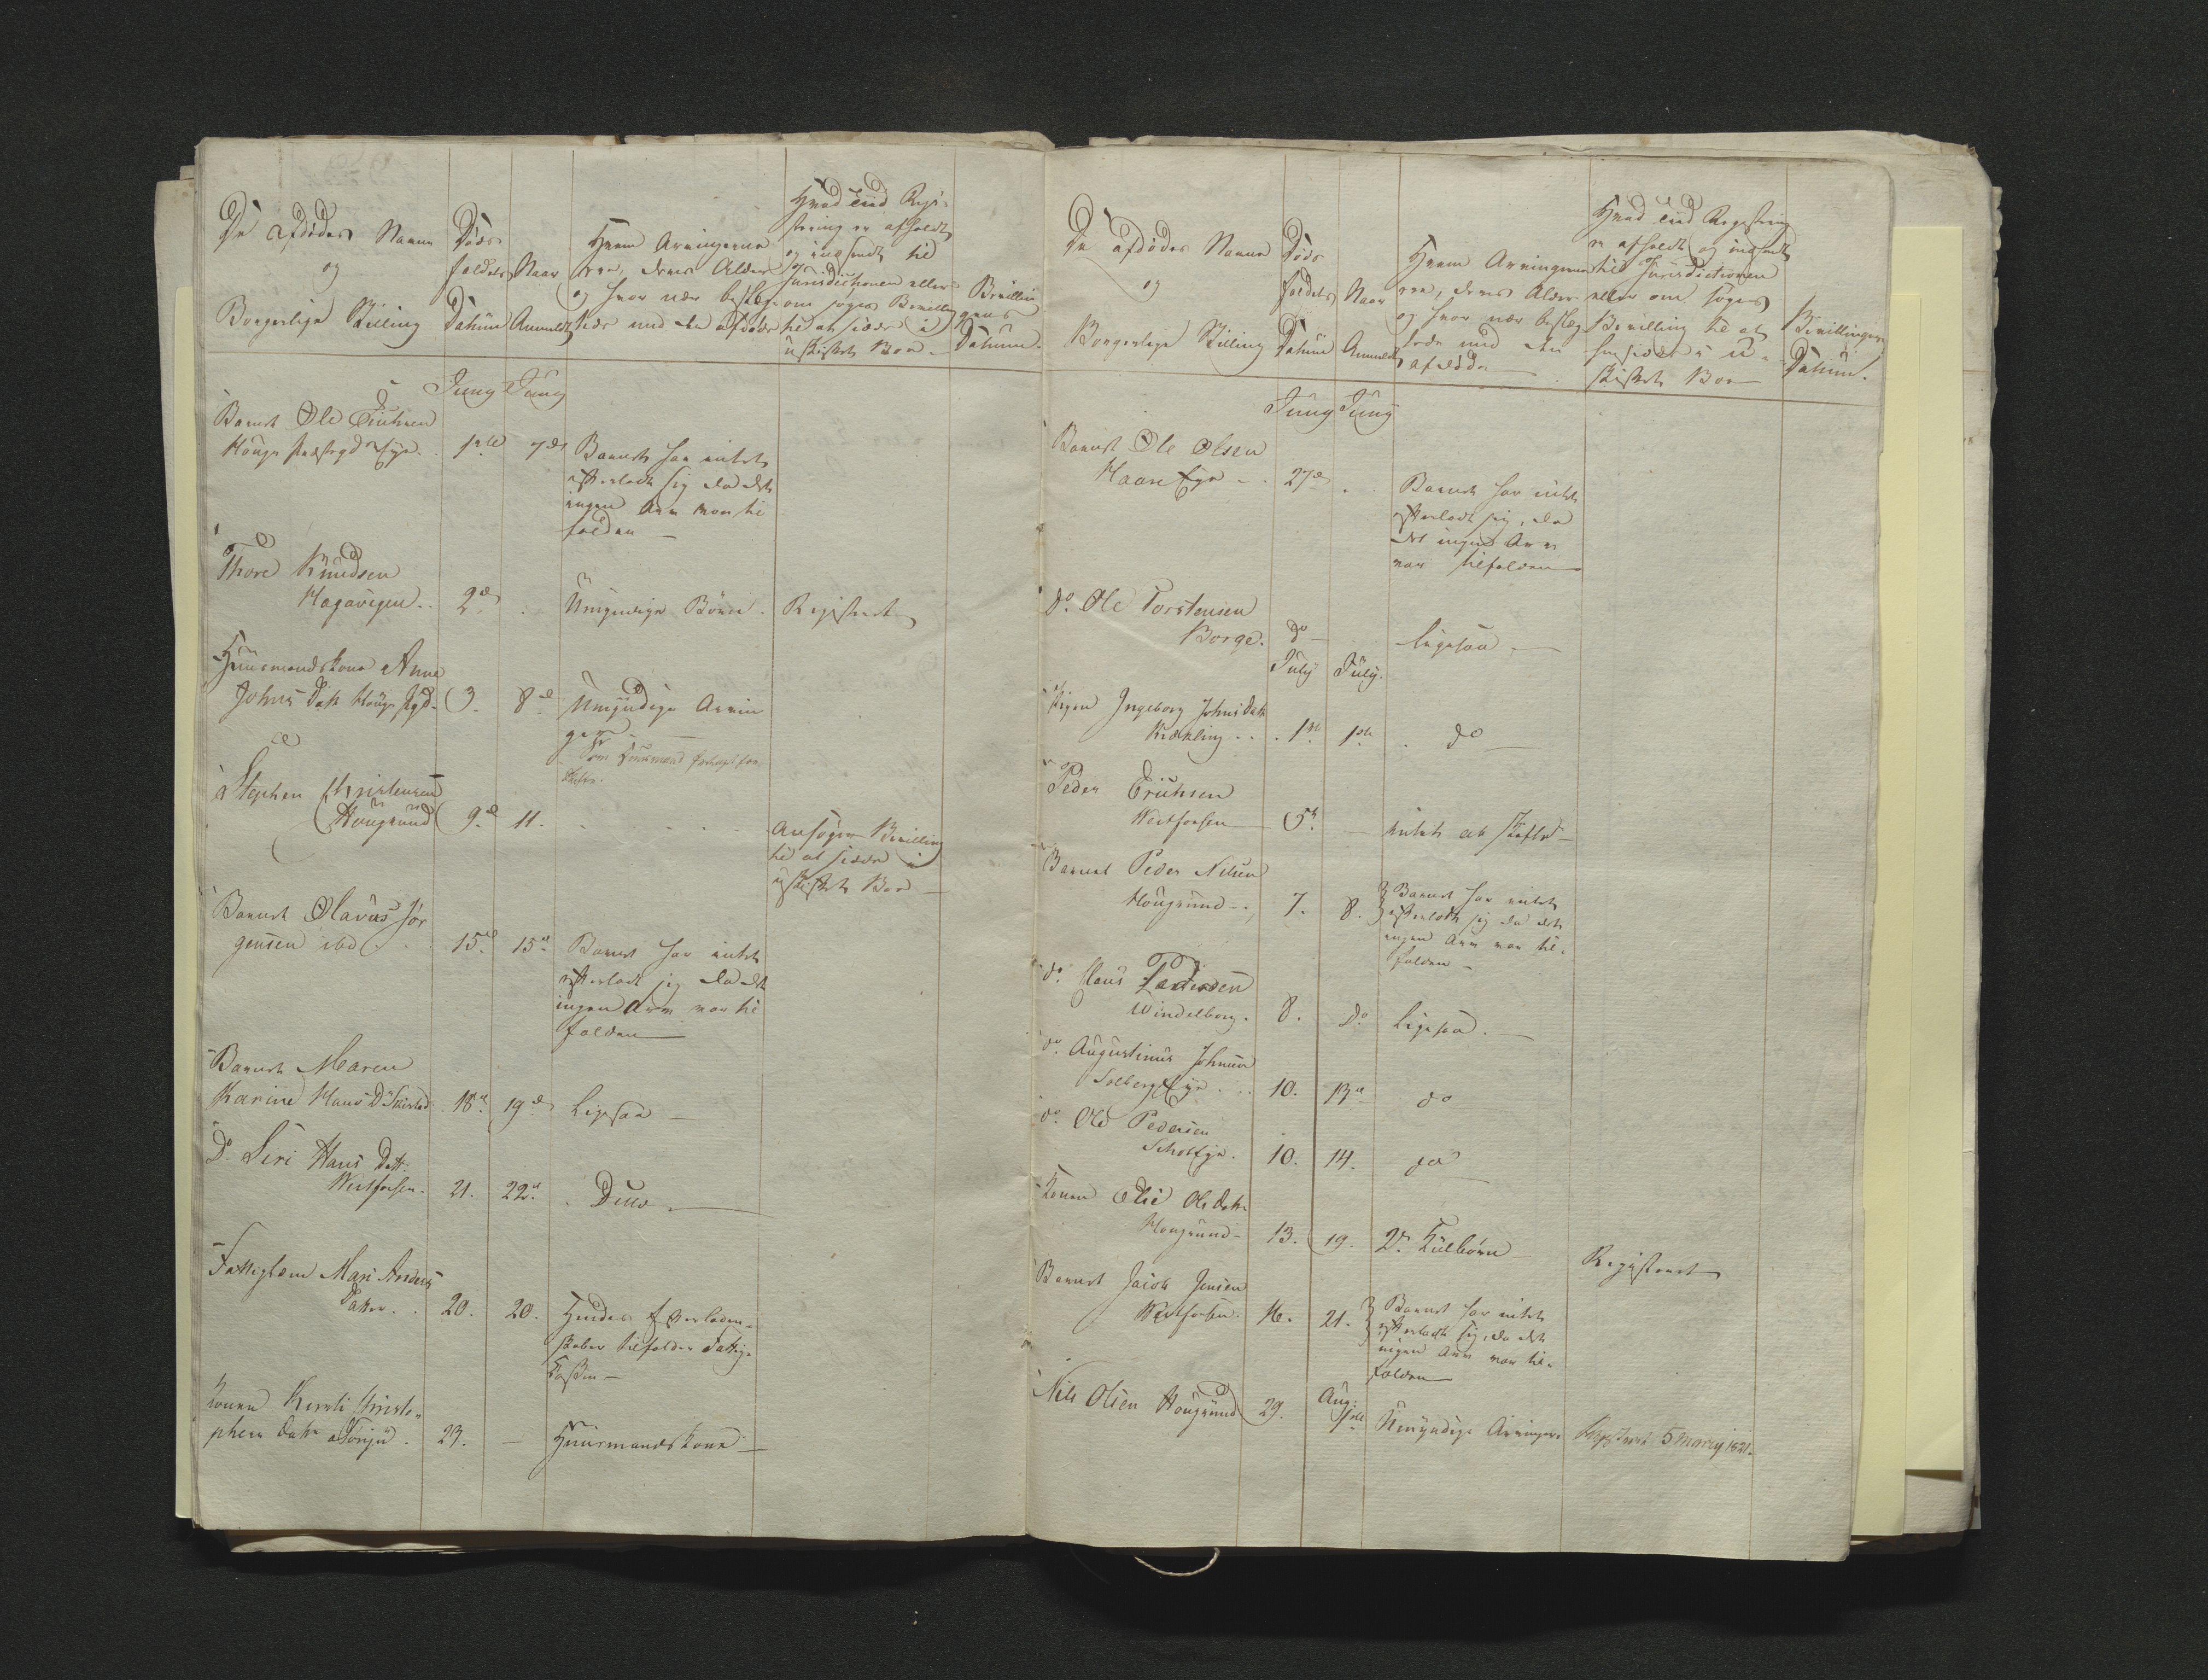 De Afdødes Navne
og
Borgerlige Stilling
Døds
faldets
Datum
Naar
Anmeldt
Hvem Arvingerne
ere, deres Alder
og hvor nær beslæg-
tede med den afdøde
Hvad End Regi-
strering er afholdt
og indsendt til
Jurisdictionen eller
om søges Bevilling
til at sidde i
uskiftet Boe
Bevillin
gens
Datum.
Juny Juny
Barnet Ole Erichsen
Hougs Præstegd Eye. 1ste 7de Barnet har intet
efterladt sig da det
ingen Arv var til
falden
Thore Knudsen
Hagavigen. 2de Umyndige Børn. Registeret
Huusmandskone Anne
Johns Datt Hougs Pgd. 3. 8de Umyndige Arvin
ger
Stephen Christensen
Hougsund 9de 11.
Ansøger Bevilling
til at sidde i
uskiftet Boe
Barnet Olavus Jør
gensen ibd 15de 15de Barnet har intet
efterladt sig da det
ingen Arv var til
falden
Barnet Maren
Karine Hans D. 18de 19de Ligesaa
Do Siri Hans Datt.
Westfosen. 21. 22de Ditto
Fattiglem Mari Anders
Datter. 20. 20. Hendes Efterladen-
skaber tilfalder Fattig-
Cassen
Konen Kirsti Christo-
phers Datr 23. Huusmandskone
De afdødes Navne
og
Borgerlige Stilling
Døds
faldets
Datum
Naar
Anmeldt
Hvem Arvingerne
ere, deres Alder
og hvor nær beslæg-
tede med den
afdøde
Hvad End Registering
er afholdt og indsendt
til Jurisdictionen
eller om søges
Bevilling til at
hensidde i U-
skiftet Boe
Bevillingens
Datum.
Juny Juny
Barnet Ole Olsen
Haare Eye 27de Barnet har intet
efterladt sig, da
det ingen Arv
var tilfalden
do. Ole Torstensen
Borge. do Ligesaa
July July.
Pigen Ingeborg Johns Datt
Krækling 1ste 1ste do
Peder Erichsen
Westfosen 5te intet at skifte
Barnet Peder Nilsen
Hougsund 7. 8. Barnet har intet
efterladt sig da det
ingen Arv var til-
falden
do. Hans Pedersen
Windelborg. 8. do Ligesaa.
do. Augustinus Johnsen
Solberg Eye 10. 13de do
do. Ole Pedersen
10. 14. do
Konen Olie Ols Datr
Hougsund 13. 19. 2de Kulbørn Registeret
Barnet Jacob Jensen
Westfosen. 16. 21. Barnet har intet
efterladt sig, da det
ingen Arv var til-
falden
Nils Olsen Hougsund 29. Aug:
1ste Umyndige Arvinger. Registeret 5 1821.